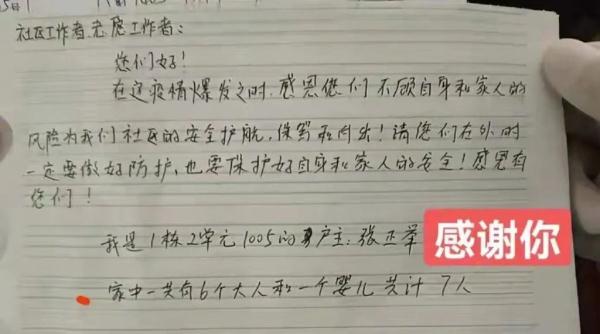 社区工作者、志愿工作者:
您们好!
在这疫情爆发之时,感恩您们不顾自身和家人的
风险为我们社区的安全护航,保驾和付出!请您们在外时
一定要做好防护,也要保护好自身和家人的安全!感恩有
您们!
我是1栋2单元1005的户主:张正举
感谢你
家中一共有6个大人和一个婴儿共计7人